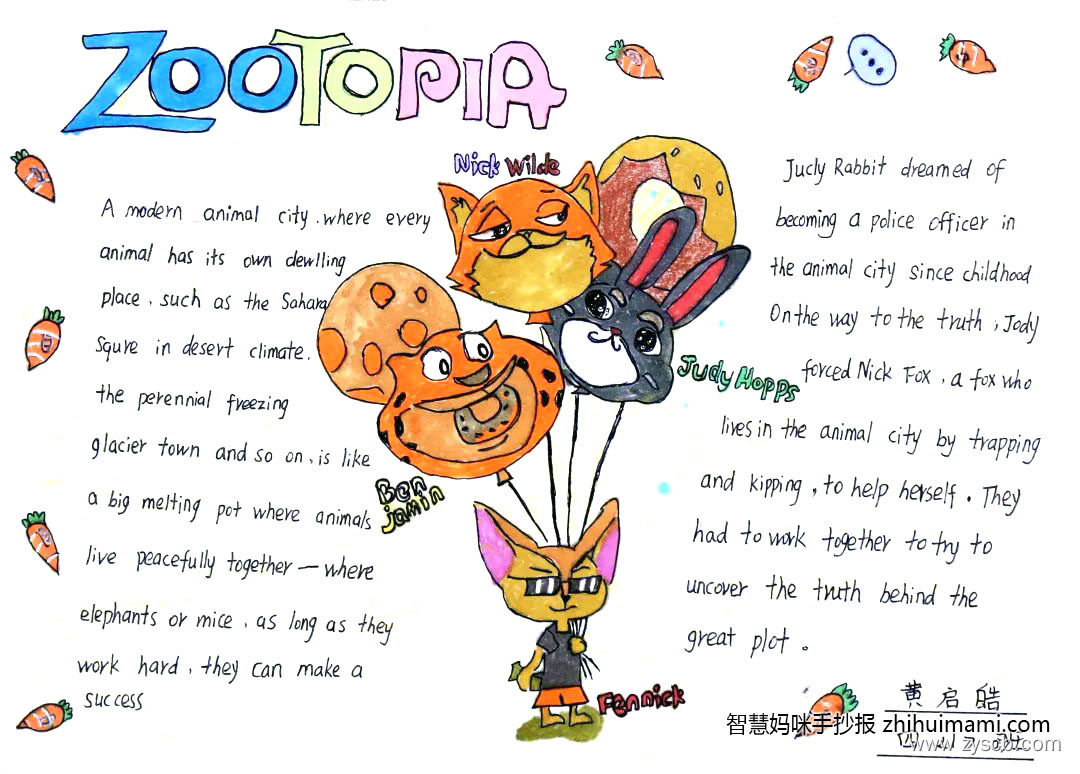 ZOOTOPIA
Nick Wilde
A modern animal city, where every
animal has its own dewlling
place, such as the Sahara
Squre in desert climate,
the perennial freezing
glacier town and so on, is like
a big melting pot where animals
live peacefully together — where
elephants or mice, as long as they
work hard, they can make a
success
Ben
jamin
Judy Hopps
Fennick
Judy Rabbit dreamed of
becoming a police officer in
the animal city since childhood
On the way to the truth, Jody
forced Nick Fox, a fox who
lives in the animal city by trapping
and kipping, to help herself. They
had to work together to try to
uncover the truth behind the
great plot。
黄启皓
智慧妈咪手抄报 zhihuimami.com